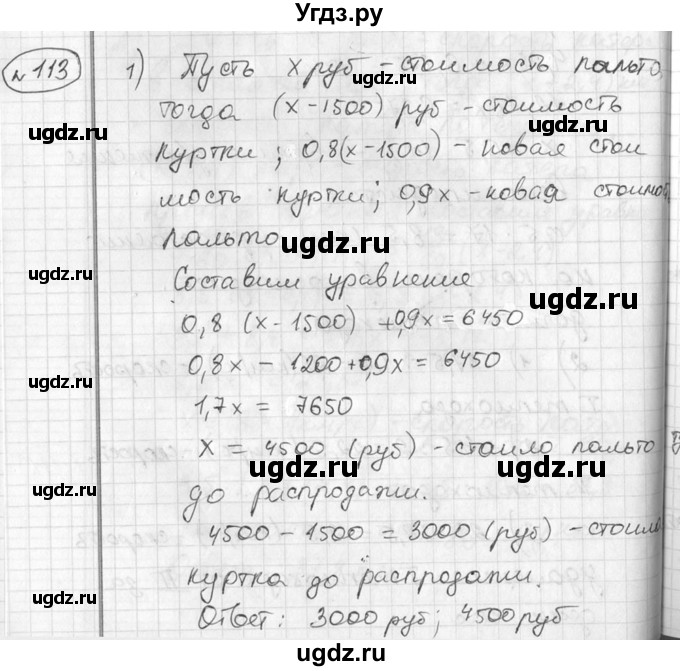 Угдз.ру
№113 1) Пусть x руб - стоимость пальто,
тогда (x-1500) руб - стоимость
куртки; 0,8(x-1500) - новая стои
мость куртки; 0,9x - новая стоимост
пальто
Составим уравнение
0,8 (x-1500) +0,9x = 6450
0,8x - 1200+0,9x = 6450
1,7x = 7650
x = 4500 (руб) - стоило пальто
до распродажи.
4500 - 1500 = 3000 (руб) - стоила
куртка до распродажи.
Ответ: 3000 руб; 4500 руб
ugdz.ru
ugdz.ru
ugdz.ru
ugdz.ru
ugdz.ru
ugdz.ru
ugdz.ru
ugdz.ru
ugdz.ru
ugdz.ru
ugdz.ru
ugdz.ru
ugdz.ru
ugdz.ru